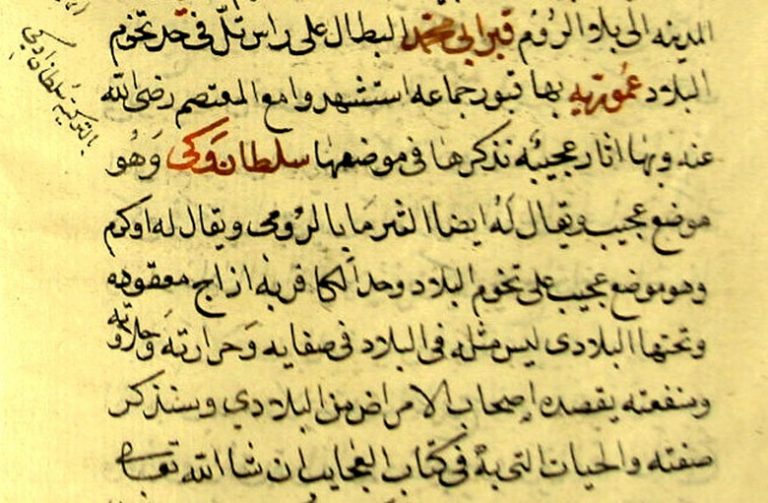 المدينه الى بلاد الروم قبر ابي محمد البطال على راس تل فى حد تخوم
البلاد عمورتيه بها قبور جماعه استشهدوا مع المعتصم رضى الله
عنه وبها اثار عجيبه نذكرها فى موضعها سلطان وكى وهو
موضع عجيب ويقال له ايضا الثرما بالرومى ويقال له اوكرم
وهو موضع عجيب على تخوم البلاد وحد الكافر به ازاج معقوده
وتحتها البلادى ليس مثله فى البلاد فى صفايه وحرارته وحلاوته
ومنفعته يقصده اصحاب الامراض من البلادي وسنذكر
صفته والحيات التى به فى كتاب العجايب ان شا الله تعا
بالتركية سلطان اوكي